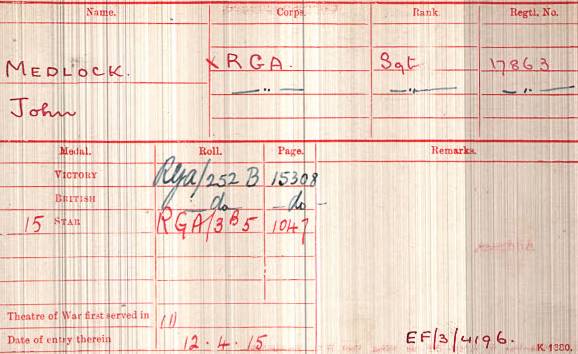 Name. Corps. Rank. Regtl. No.
MEDLOCK. X RGA. Sgt 17863
John — " — — " — — " —
Medal. Roll. Page. Remarks.
VICTORY RGA/252 B 15308
BRITISH — do — — do —
15 STAR RGA/3B5 1047
Theatre of War first served in (1)
Date of entry therein 12.4.15 EF/3/4196.
K. 1380.